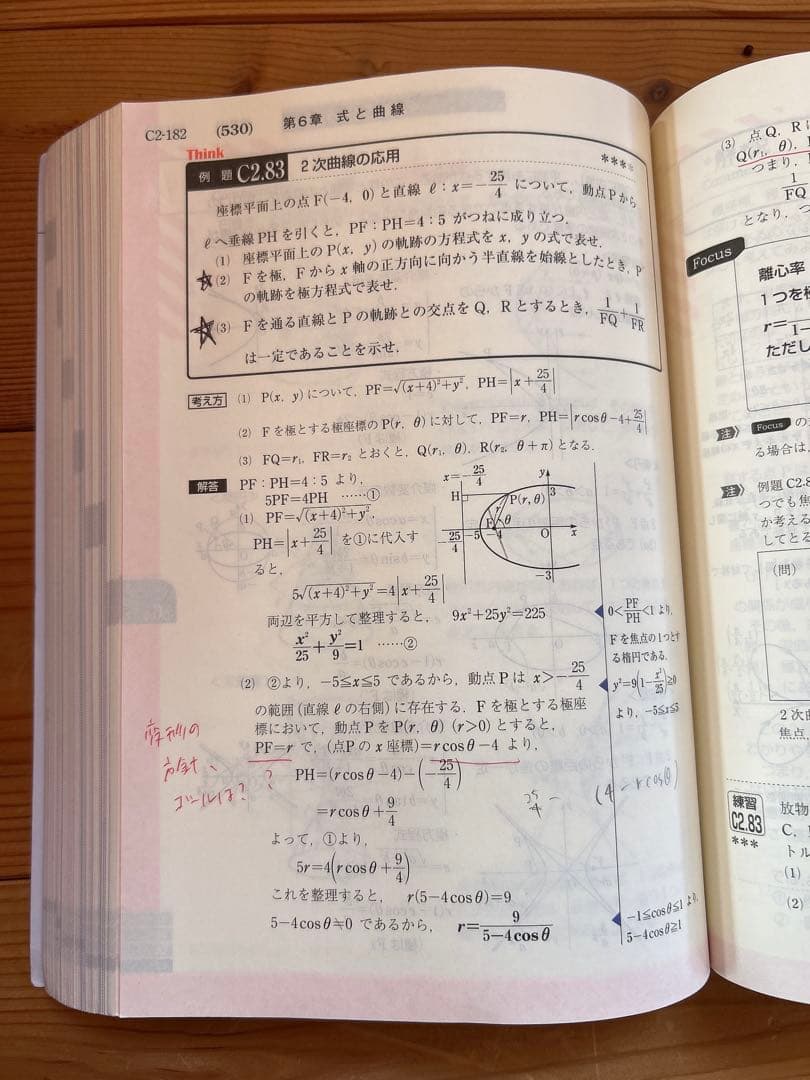 C2-182 (530) 第6章 式と曲線
Think
例題 C2.83 2次曲線の応用 ****
座標平面上の点F(−4, 0)と直線 ℓ：x=−25/4 について，動点Pから
ℓへ垂線PHを引くと，PF：PH=4：5 がつねに成り立つ．
(1) 座標平面上のP(x, y)の軌跡の方程式をx, yの式で表せ．
(2) Fを極，Fからx軸の正方向に向かう半直線を始線としたとき，P
の軌跡を極方程式で表せ．
(3) Fを通る直線とPの軌跡との交点をQ，Rとするとき，1/FQ+1/FR
は一定であることを示せ．
考え方 (1) P(x, y)について，PF=√((x+4)²+y²)，PH=|x+25/4|
(2) Fを極とする極座標のP(r, θ)に対して，PF=r，PH=|rcosθ−4+25/4|
(3) FQ=r₁，FR=r₂とおくと，Q(r₁, θ)，R(r₂, θ+π)となる．
解答 PF：PH=4：5 より，
5PF=4PH ……①
(1) PF=√((x+4)²+y²)，
PH=|x+25/4| を①に代入す
ると，
5√((x+4)²+y²)=4|x+25/4|
x=−25/4
y
H
P(r, θ)
3
r
F
θ
−25/4
−5
−4
O
x
−3
両辺を平方して整理すると，9x²+25y²=225
x²/25+y²/9=1 ……②
0<PF/PH<1 より，
Fを焦点の1つとす
る楕円である．
(2) ②より，−5≦x≦5であるから，動点Pは x>−25/4
の範囲(直線ℓの右側)に存在する．Fを極とする極座
標において，動点PをP(r, θ)(r>0)とすると，
PF=rで，(点Pのx座標)=rcosθ−4 より，
y²=9(1−x²/25)≧0
より，−5≦x≦5
PH=(rcosθ−4)−(−25/4)
=rcosθ+9/4
方針、
ゴールは？ ?
25/4 − (4−rcosθ)
よって，①より，
5r=4(rcosθ+9/4)
これを整理すると，r(5−4cosθ)=9
5−4cosθ≠0 であるから，r=9/(5−4cosθ)
−1≦cosθ≦1 より，
5−4cosθ≧1
(3) 点Q，R
Q(r₁, θ)，
つまり，
1/FQ
となり，つ
Focus
離心率
1つを極
r=
1−
ただし
注 Focus の
る場合は，
注 例題C2.8
つでも焦
か考える
してとる
(問)
2次
焦点，
練習
C2.83
***
放物
C，
トル
(1)
(2)